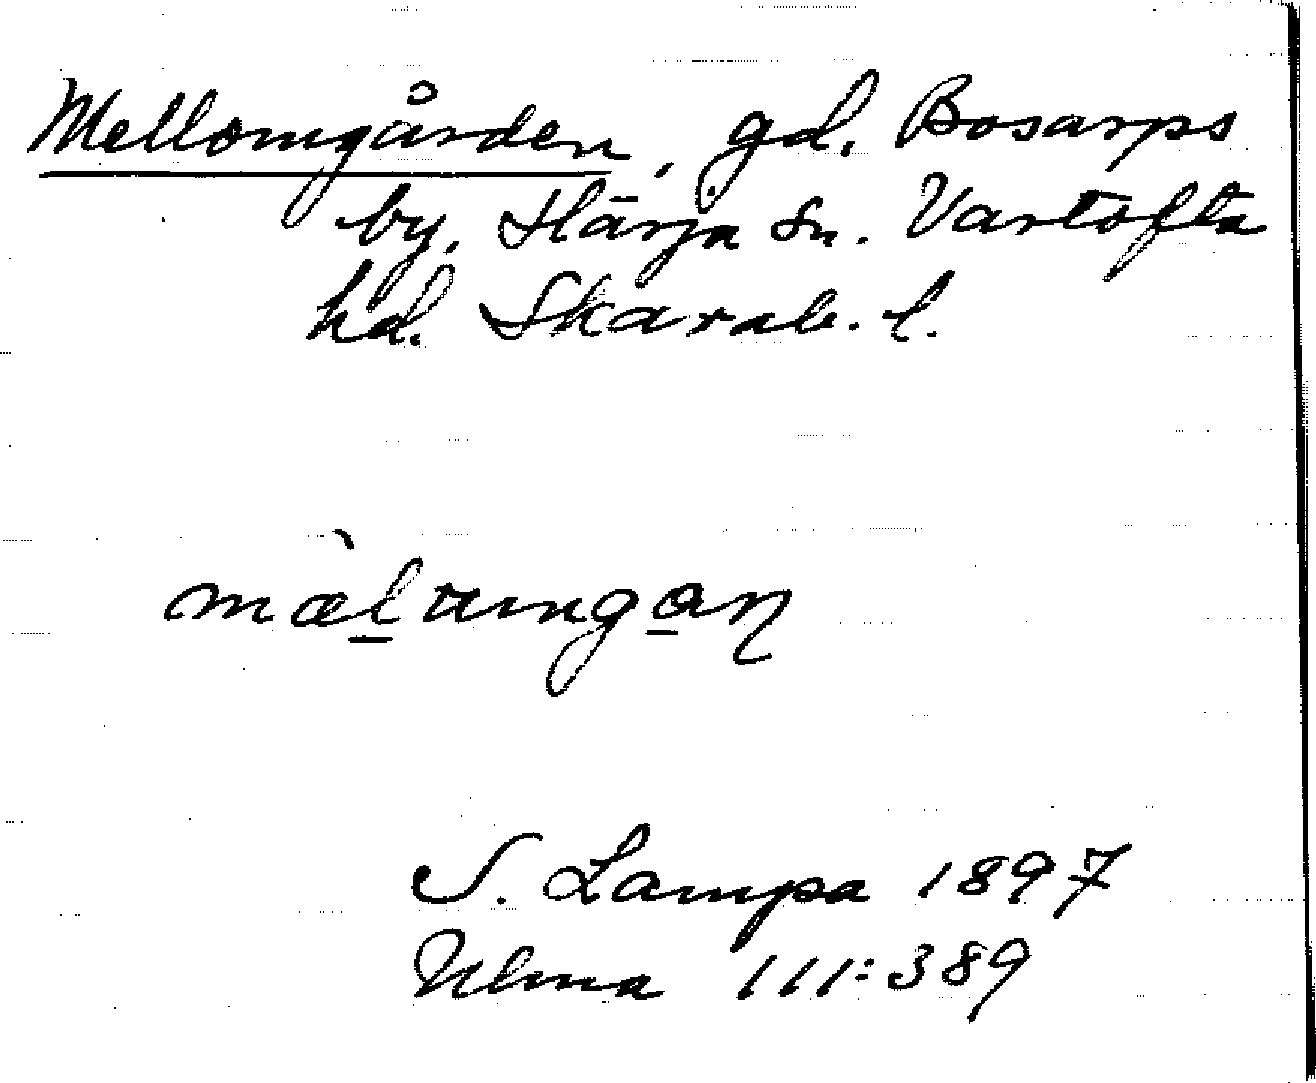 Mellomgården, gd. Bosarps
by, Härja sn. Vartofta
hd. Skarab. l.
mæ̀l̠unga̠ɳ
S. Lampa 1897
Ulma 111:389